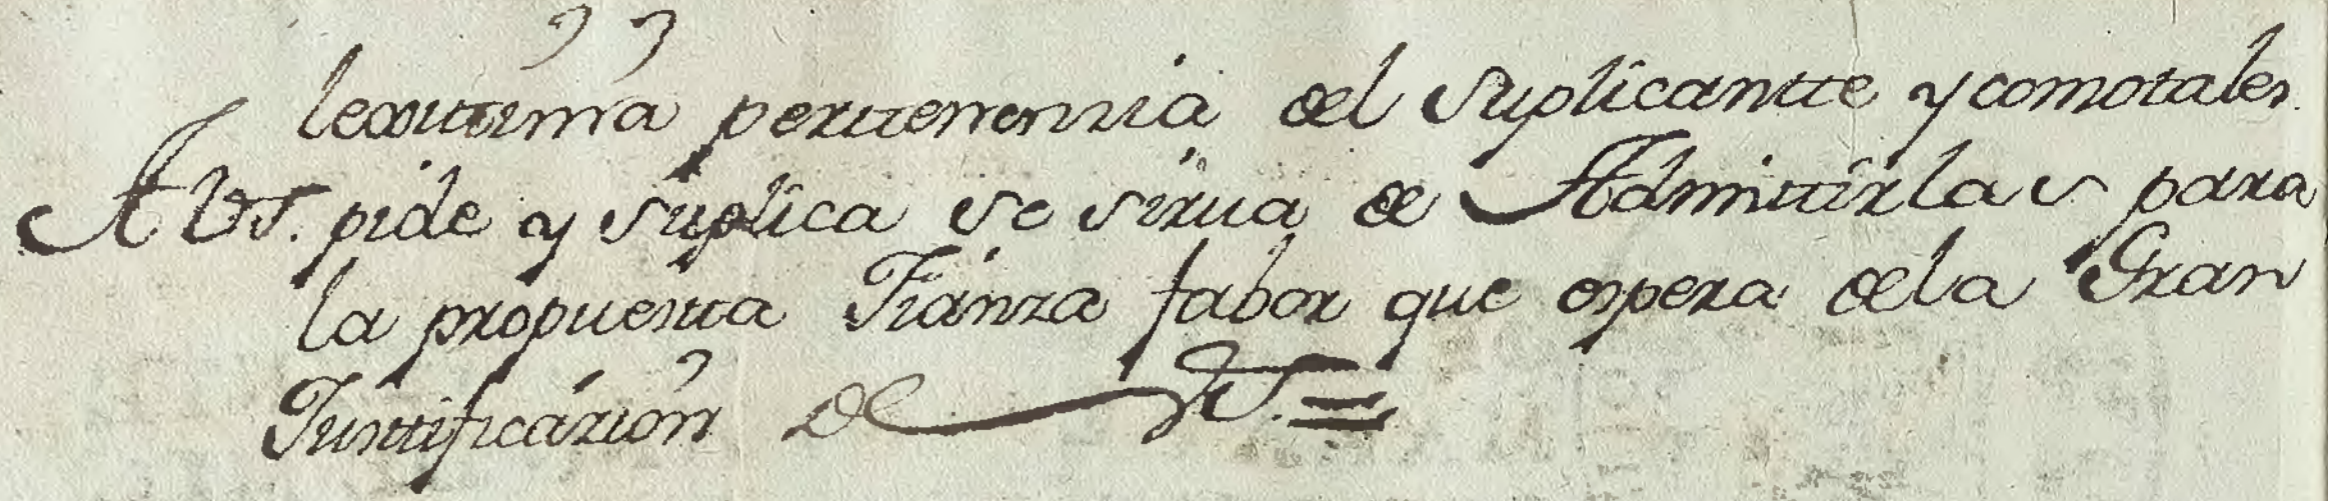 lexittima perttenenzia del Suplicantte y comotales.
A VS. pide y suplica se sirua de Admittirlas para
la propuestta Fianza fabor que espera dela Gran
Justtificazion de VS. =